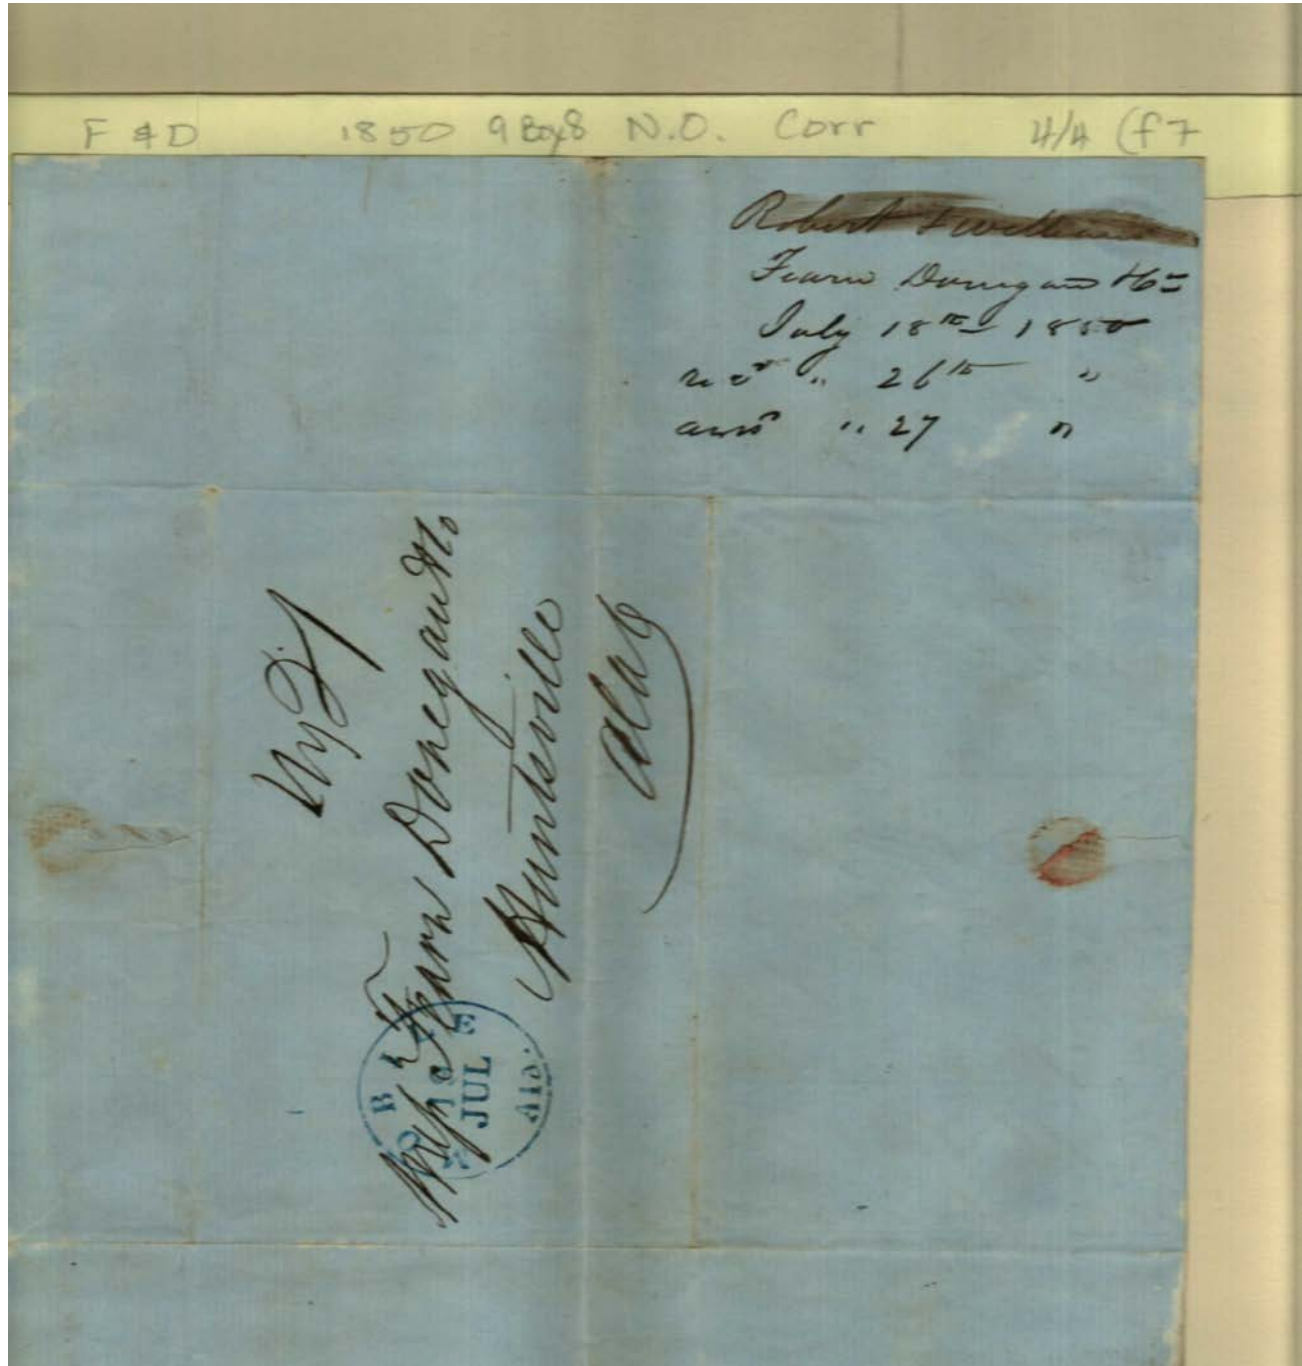 F & D 1850 9 Box 8 N.O. Corr 4/4 (f7
Robert
Fearn Donegan & Co
July 18th 1850
recd " 26th "
ansd " 27 "
Messrs Fearn Donegan & Co
Huntsville
Ala
JUL
Ala.